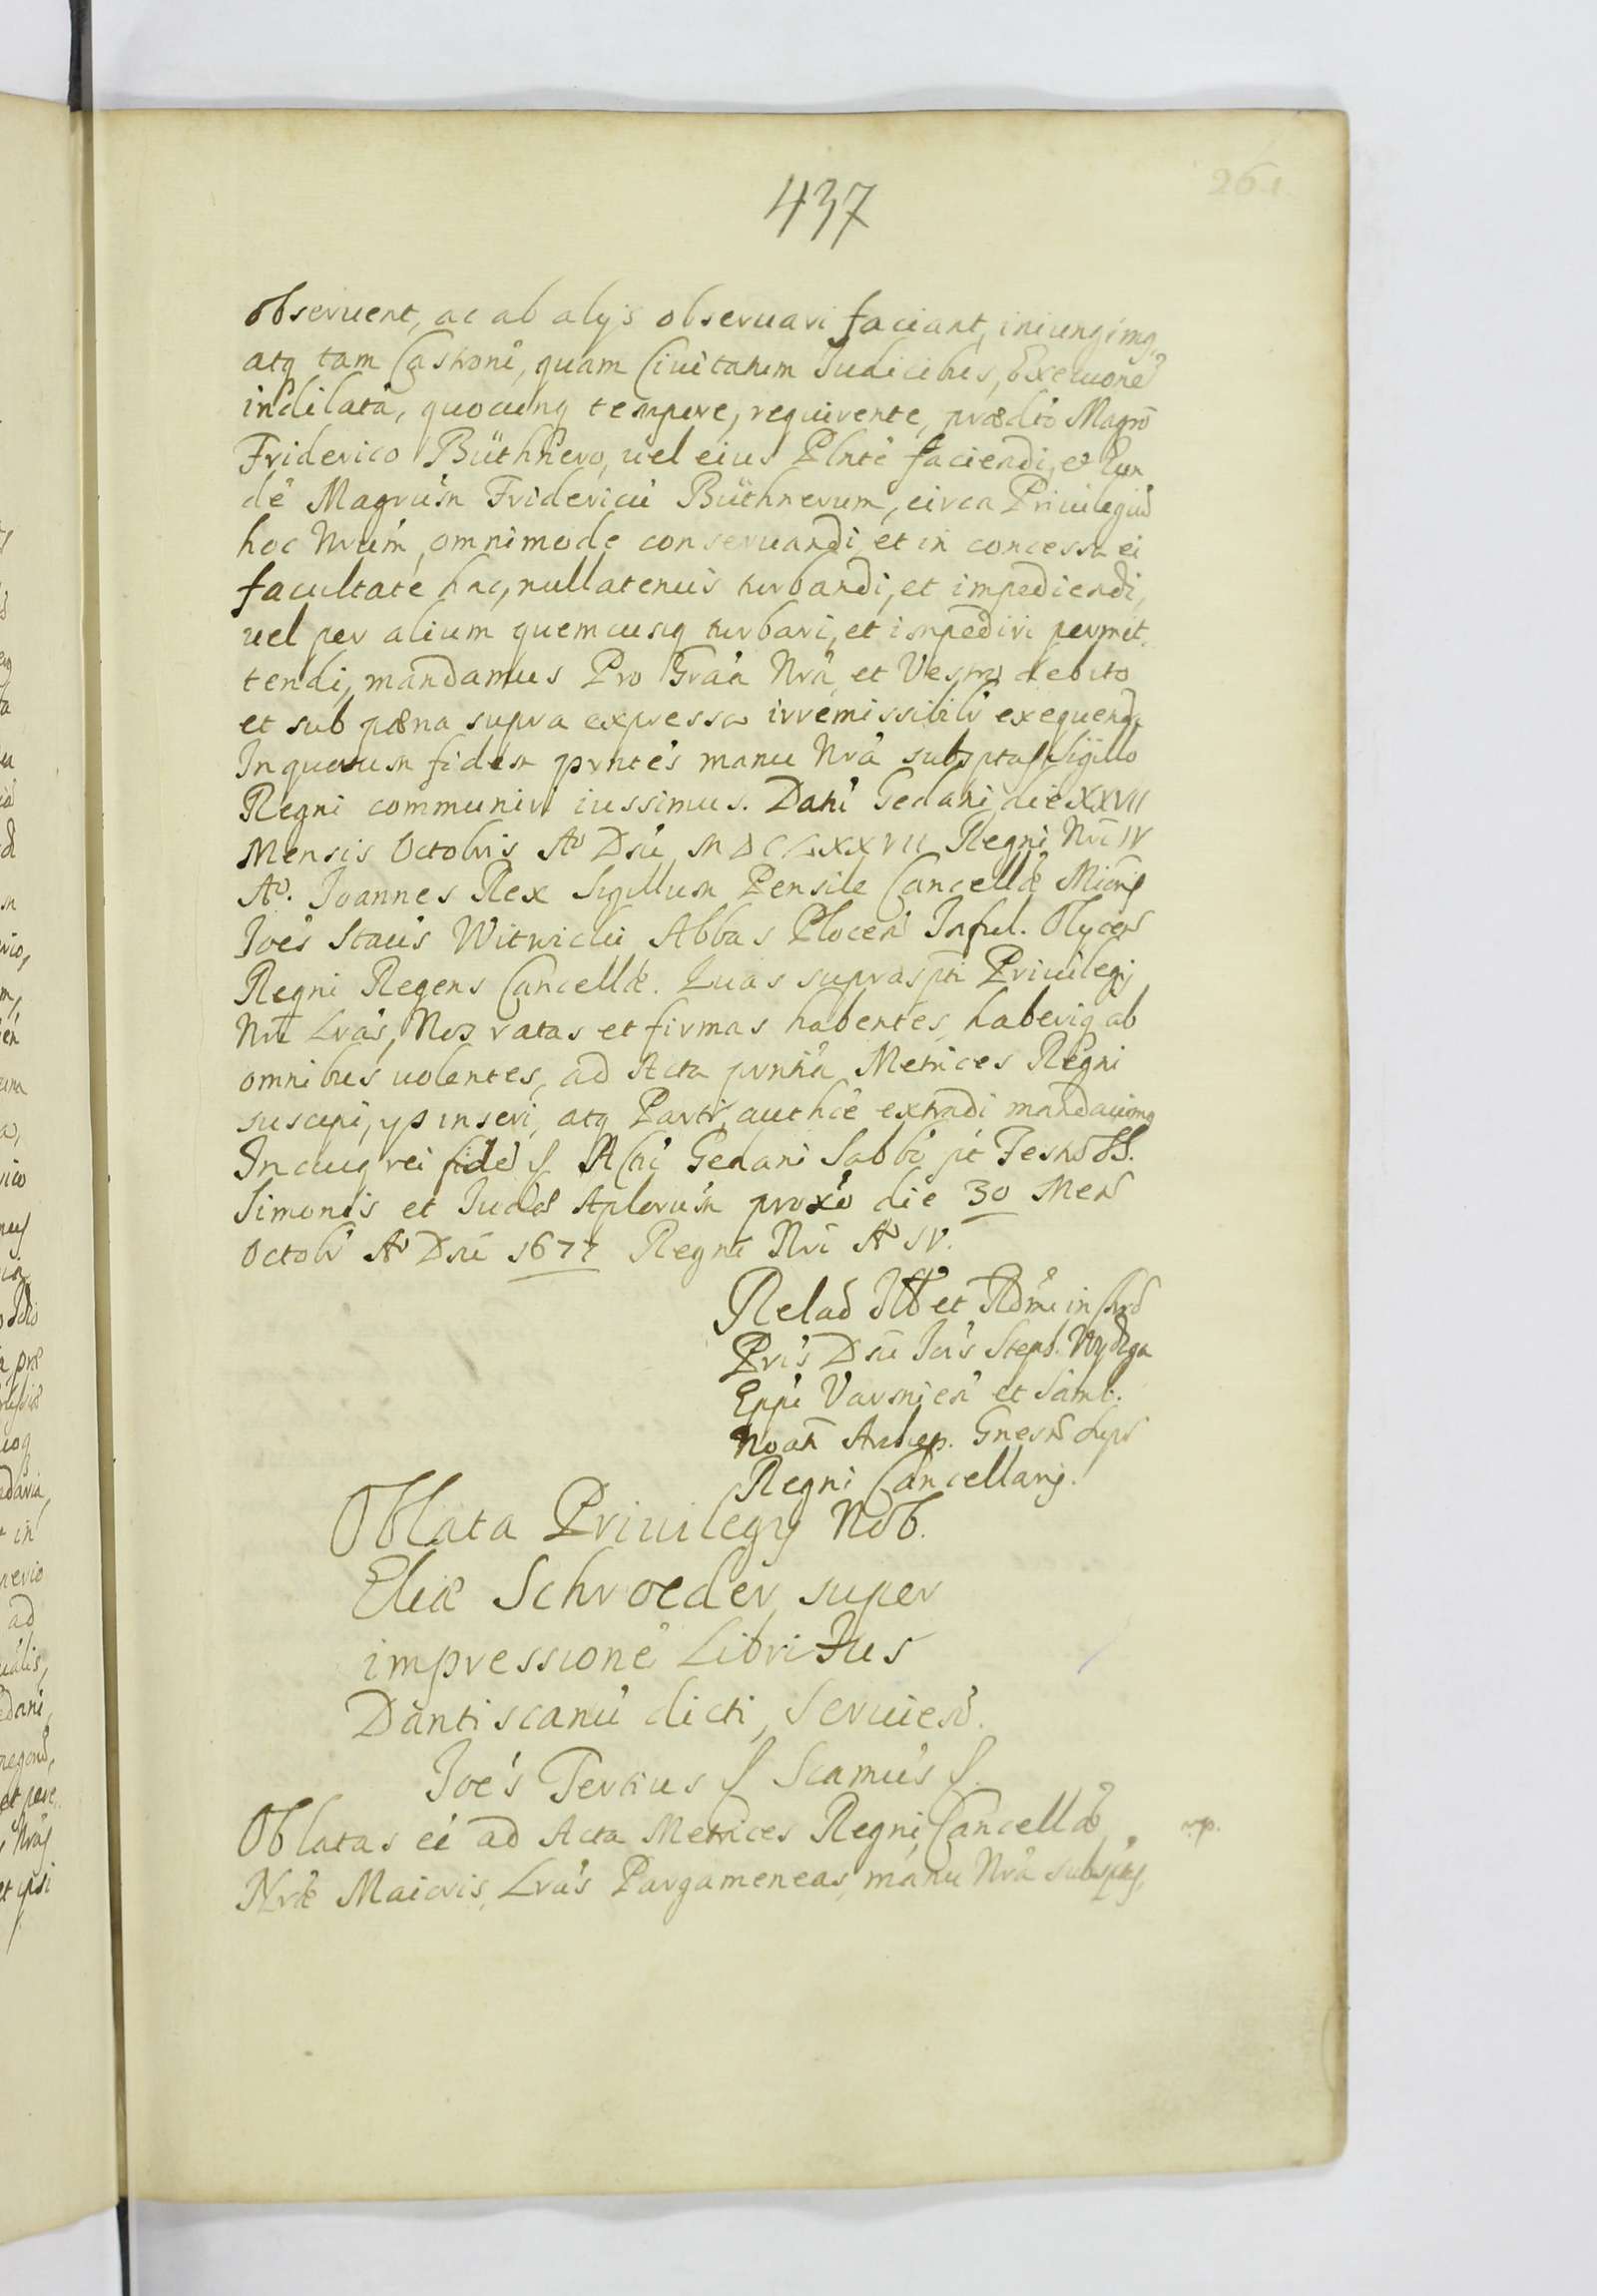 437
261
observent, ac ab alijs observari faciant, iniungimq
atq tam Castronī, quam Civitatum Judicibus, Exețuonē
indilatā, quocunq tempore, requirente, prædto Magrō
Friderico Büthnero, vel eius Plntē faciendi, et Eun
dē Magrum Fridericū Büthnerum, circa Privilegiū
hoc Nrum, omnimode conservandi, et in concessa ei
facultate hac, nullatenus turbandi, et impediendi,
vel per alium quemcunq turbari, et impediri permit
tendi, mandamus Pro Graā Nrā, et Vestro debito
et sub pæna supra expressa irremissibilr exequenda
In quorum fidem prntēs manu Nrā subsptas Sigillo
Regni communiri iussimus. Datt Gedani die XXVII
Mensis Octobris Ao Dni MDCLXXVII Regni Nri IV
Ao. Joannes Rex Sigillum Pensile Cancellæ Mioris
Joēs Staūs Witwicki Abbas Plocen Inful.
Regni Regens Cancellæ. Quas suprasptī Privilegij
Nrī Lrās, Nos ratas et firmas habentes, haberiq ab
omnibus volentes, ad Acta prntia Metrices Regni
suscipi, ijs inseri, atq Parti authcē extradi mandavimq
In cuiq rei fidē Act Gedani Sabbo pt Festū SS.
Simonis et Judæ Aplorum proxo die 30 Mens
Octobr Ao Dni 1677 Regni Nri Ao IV.
Relao Ill et Rdmi in Chrō
Pris Dni Jōis Steph. Wydzga
Eppi Varmien et Samb.
Noāti Archiep. Gnesn
Regni Cancellarij.
Oblata Privilegij Nob.
Eliæ Schroeder, super
impressionē Libri Jus
Dantiscanū dicti, Servien.
Joēs Tertius Scamūs
Oblatas eē ad Acta Metrices Regni, Cancellæ
Nræ Maioris, Lrās Pargameneas, manu Nrā subsptas,